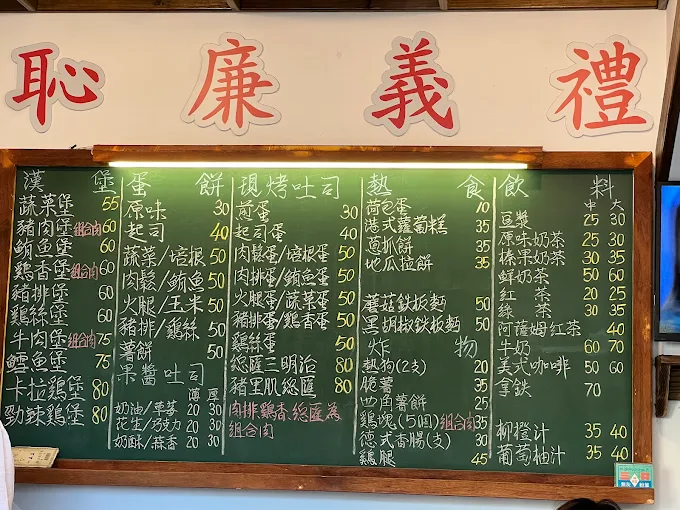 恥 廉 義 禮
漢堡
蔬菜堡 55
豬肉堡 組合肉 60
鮪魚堡 60
鷄香堡 組合肉 60
豬排堡 60
鷄絲堡 60
牛肉堡 組合肉 75
鱈魚堡 75
卡拉鷄堡 80
勁辣鷄堡 80
蛋餅
原味 30
起司 40
蔬菜/培根 50
肉鬆/鮪魚 50
火腿/玉米 50
豬排/鷄絲 50
薯餅 50
果醬吐司 薄 厚
奶油/草莓 20 30
花生/巧克力 20 30
奶酥/蒜香 20 30
現烤吐司
煎蛋 30
起司蛋 40
肉鬆蛋/培根蛋 50
肉排蛋/鮪魚蛋 50
火腿蛋/蔬菜蛋 50
豬排蛋/鷄香蛋 50
鷄絲蛋 50
總匯三明治 80
豬里肌總匯 80
肉排、鷄香、總匯為
組合肉
熱食
荷包蛋 10
港式蘿蔔糕 35
蔥抓餅 35
地瓜拉餅 35
蘑菇鉄板麵 50
黑胡椒鉄板麵 50
炸物
熱狗(2支) 20
脆薯 35
四角薯餅 25
鷄塊(5個)組合肉 35
德式香腸(支) 30
鷄腿 45
飲料
中 大
豆漿 25 30
原味奶茶 25 30
榛果奶茶 30 35
鮮奶茶 50 60
紅茶 20 25
綠茶 30 35
阿薩姆紅茶 40
牛奶 60 70
美式咖啡 50 60
拿鉄 70
柳橙汁 35 40
葡萄柚汁 35 40